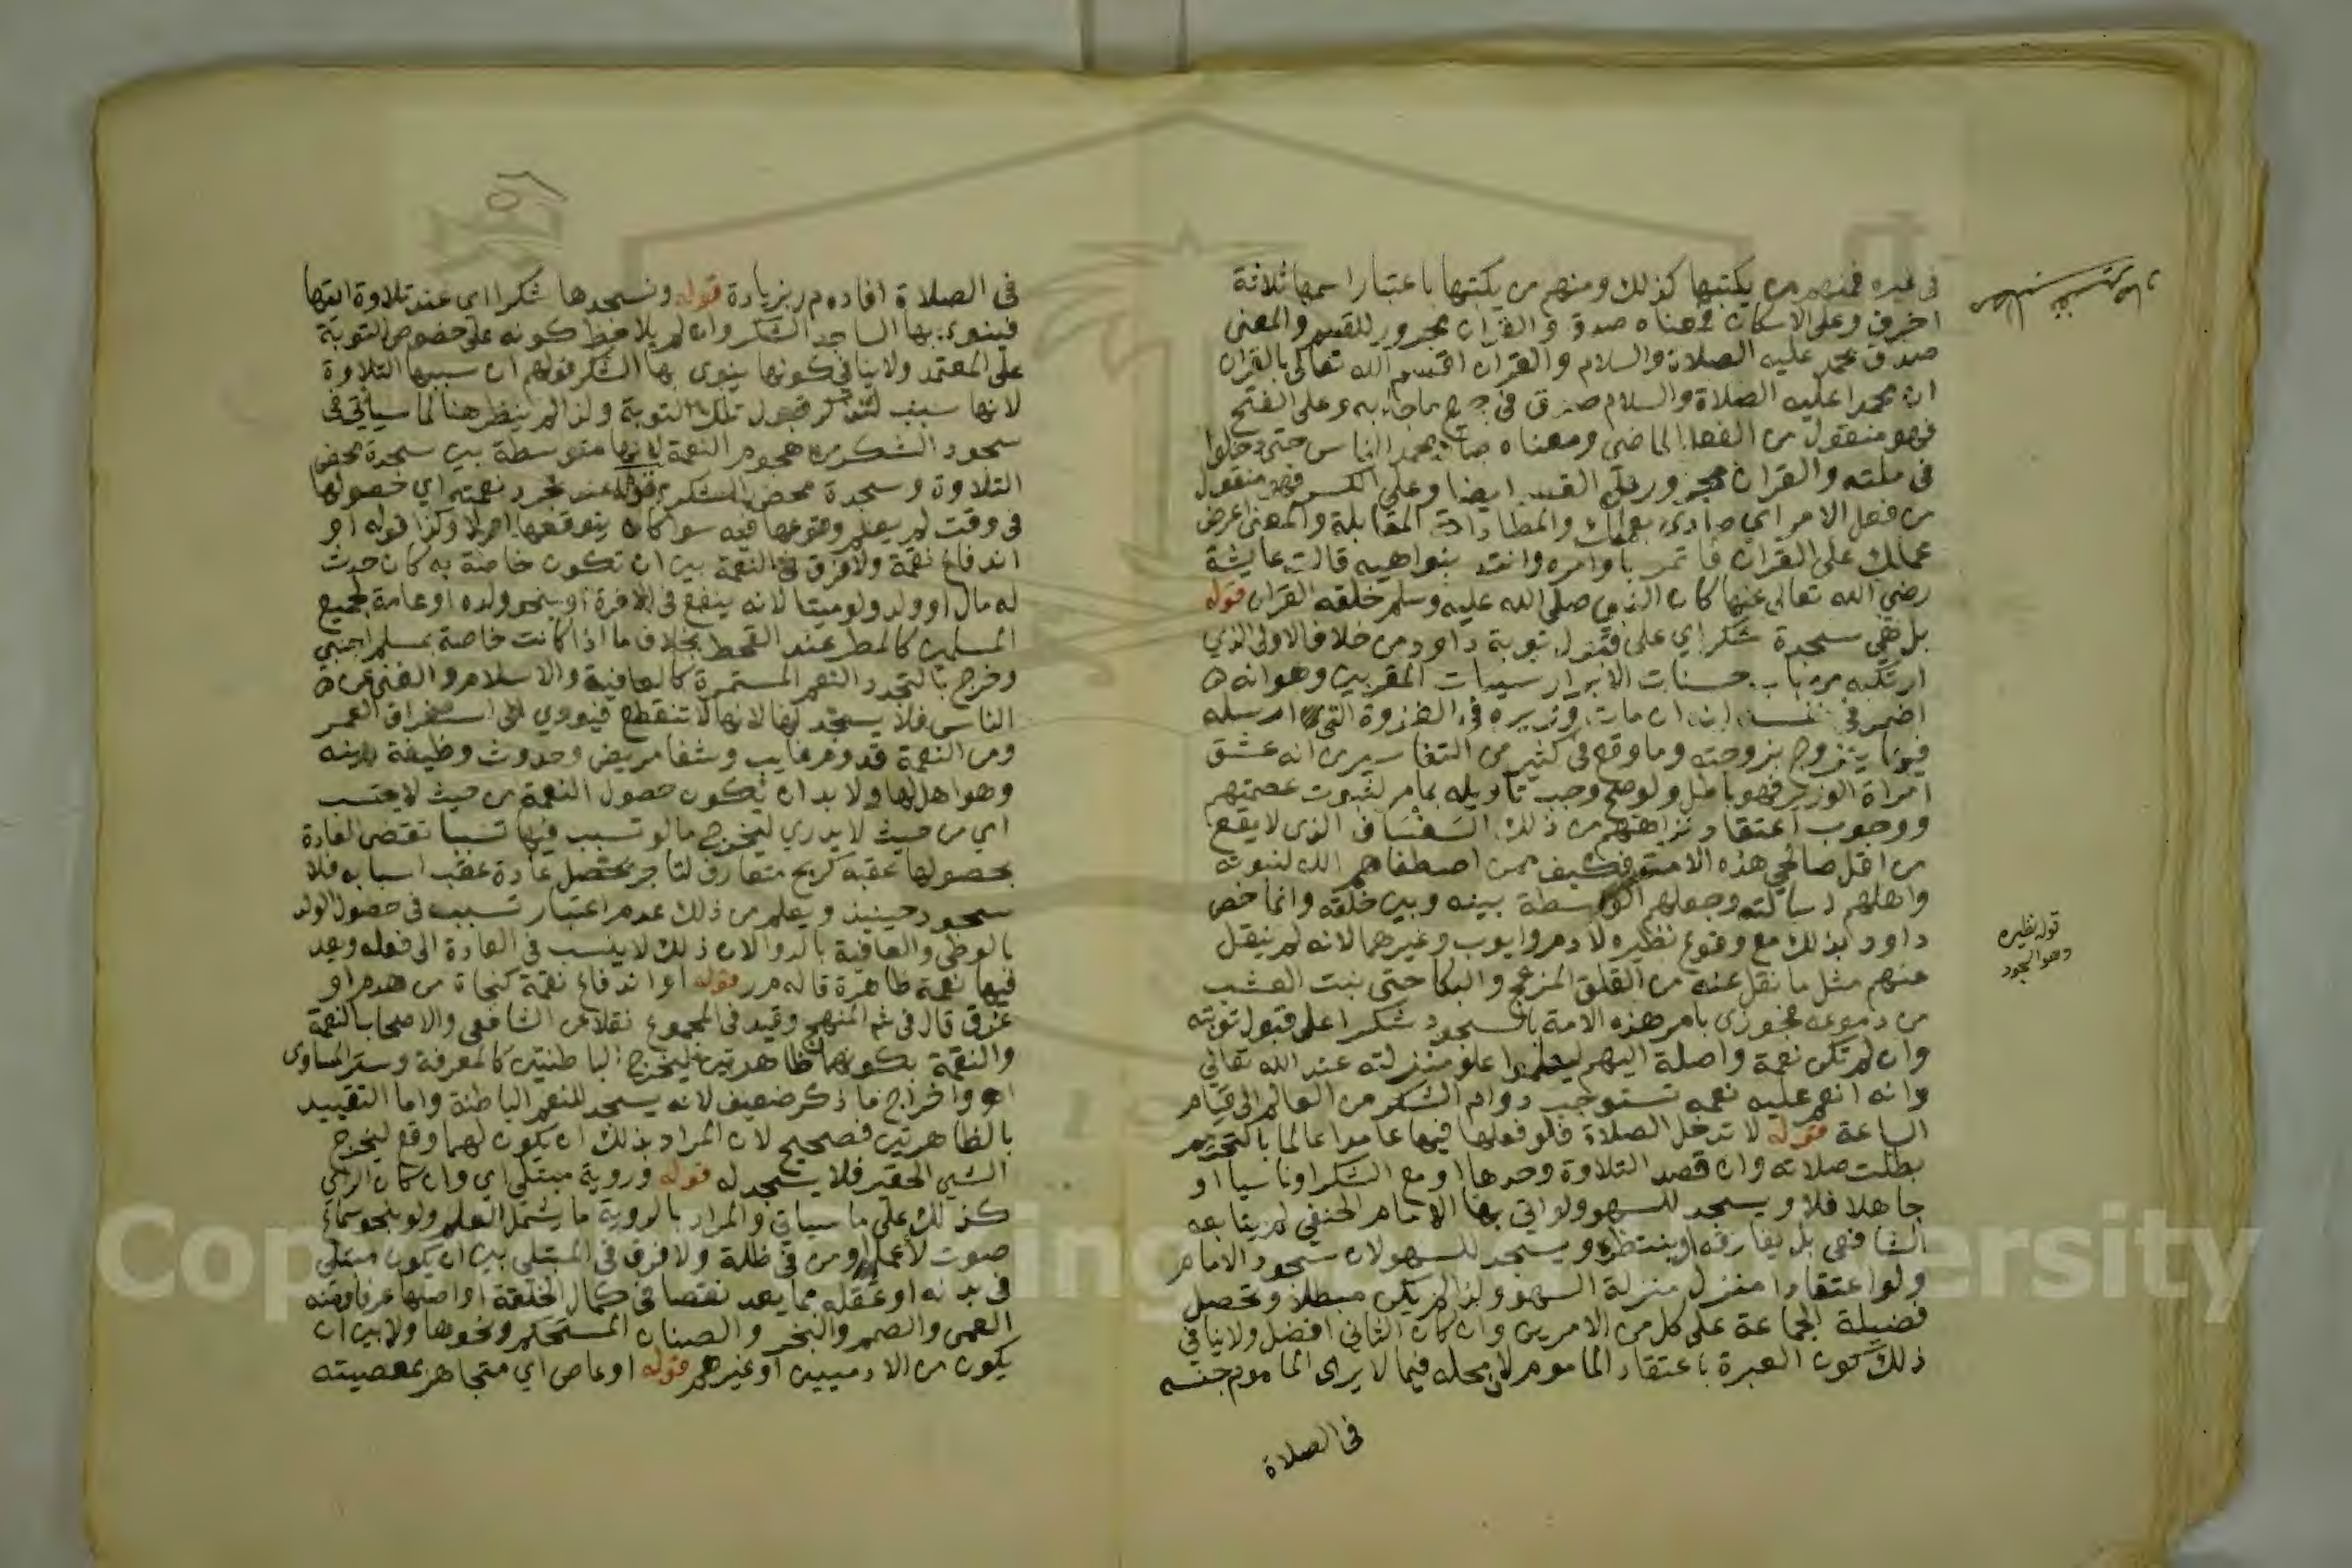 في غيره فمنهم من يكتبها كذلك ومنهم من يكتبها باعتبار اسمها ثلاثة
احرف وعلى الاسكان فمعناه صدق والقران مجرور للقسم والمعنى
صدق محمد عليه الصلاة والسلام والقران اقسم الله تعالى بالقران
ان محمدا عليه الصلاة والسلام صدق في جميع ما جاء به وعلى الفتح
فهو منقول من الفعل الماضي ومعناه صاد محمد الناس حتى دخلوا
في ملته والقران مجرور على القسم ايضا وعلى الكسر فهو منقول
من فعل الامر اي صادي بعملك والمصاداة المقابلة والمعنى اعرض
عملك على القران فاتمر باوامره وانته بنواهيه قالت عايشة
رضي الله تعالى عنها كان النبي صلى الله عليه وسلم خلقه القران قوله
بل هي سجدة شكر اي على قبول توبة داود من خلاف الاولى الذي
ارتكبه من باب حسنات الابرار سييات المقربين وهو انه
اضمر في نفسه ان مات وزيره في الغزوة التي ارسله
فيها يتزوج بزوجته وما وقع في كثير من التفاسير من انه عشق
امراة الوزير فهو باطل ولو صح وجب تاويله بما مر لثبوت عصمتهم
ووجوب اعتقاد نزاهتهم من ذلك السفساف الذي لا يقع
من اقل صالحي هذه الامة فكيف بمن اصطفاهم الله لنبوته
واهلهم لرسالته وجعلهم الواسطة بينه وبين خلقه وانما خص
داود بذلك مع وقوع نظيره لادم وايوب وغيرهما لانه لم ينقل
عنهم مثل ما نقل عنه من القلق المزعج والبكا حتى نبت العشب
من دموعه فجوزي بامر هذه الامة بالسجود شكرا على قبول توبته
وان لم تكن نعمة واصلة اليهم ليعلموا علو منزلته عند الله تعالى
وانه انعم عليه نعمه تستوجب دوام الشكر من العالم الى قيام
الساعة قوله لا تدخل الصلاة فلو فعلها فيها عامدا عالما بالتحريم
بطلت صلاته وان قصد التلاوة وحدها او مع الشكر او ناسيا او
جاهلا فلا ويسجد للسهو ولو اتى بها الامام الحنفي لم يتابعه
الشافعي بل يفارقه او ينتظره ويسجد للسهو لان سجود الامام
ولو اعتقادا منزل منزلة السهو ولذا لم يكن مبطلا وتحصل
فضيلة الجماعة على كل من الامرين وان كان الثاني افضل ولا ينافي
ذلك كون العبرة باعتقاد الماموم لان محله فيما لا يرى الماموم جنسه
في الصلاة
قوله نظيره
وهو السجود
في الصلاة افاده م ر بزيادة قوله ونسجدها شكرا اي عند تلاوة ايتها
فينوي بها الساجد الشكر وان لم يلاحظ كونه على خصوص التوبة
على المعتمد ولا ينافي كونها ينوي بها الشكر قولهم ان سببها التلاوة
لانها سبب لتذكر قبول تلك التوبة ولذا لم ينظر هنا لما سياتي في
سجود الشكر من هجوم النعمة لانها متوسطة بين سجدة محض
التلاوة وسجدة محض الشكر قوله عند تجرد نعمته اي حصولها
في وقت لم يعلم وقوعها فيه سوا كان يتوقعها ام لا وكذا قوله او
اندفاع نقمة ولا فرق في النعمة بين ان تكون خاصة به كان حدث
له مال او ولد ولو ميتا لانه ينفع في الاخرة او بنحو ولده او عامة لجميع
المسلمين كالمطر عند القحط بخلاف ما اذا كانت خاصة بمسلم اجنبي
وخرج بالتجدد النعم المستمرة كالعافية والاسلام والغنى عن
الناس فلا يسجد لها لانها لا تنقطع فيودي الى استغراق العمر
ومن النعمة قدوم غايب وشفا مريض وحدوث وظيفة دينه
وهو اهل لها ولا بد ان تكون حصول النعمة من حيث لا يحتسب
اي من حيث لا يدري ليخرج ما لو تسبب فيها تسببا تقتضي العادة
بحصولها عقبه كربح متعارف لتاجر يحصل عادة عقب اسبابه فلا
سجود حينيذ ويعلم من ذلك عدم اعتبار تسبب في حصول الولد
بالوطي والعافية بالدوا لان ذلك لا ينسب في العادة الى فعله ويعد
فيها نعمة ظاهرة قاله م ر قوله او اندفاع نقمة كنجاة من هدم او
غرق قال في شم المنهج وقيد في المجموع نقلا عن الشافعي والاصحاب النعمة
والنقمة بكونهما ظاهرتين ليخرج الباطنتين كالمعرفة وستر المساوي
اه واخراج ما ذكر ضعيف لانه يسجد للنعم الباطنة واما التقييد
بالظاهرتين فصحيح لان المراد بذلك ان يكون لهما وقع ليخرج
الشي الحقير فلا يسجد له قوله وروية مبتلى اي وان كان الراي
كذلك على ما سياتي والمراد بالروية ما يشمل العلم ولو بنحو سماع
صوت لاعمى او من في ظلة ولا فرق في المبتلى بين ان يكون مبتلى
في بدنه او عقله مما يعد نقصا في كمال الخلقة او اصلها عرفا ومنه
العمى والصمم والبخر والصنان المستحكم ونحوها ولا بين ان
يكون من الادميين او غيرهم قوله او عاص اي متجاهر بمعصيته